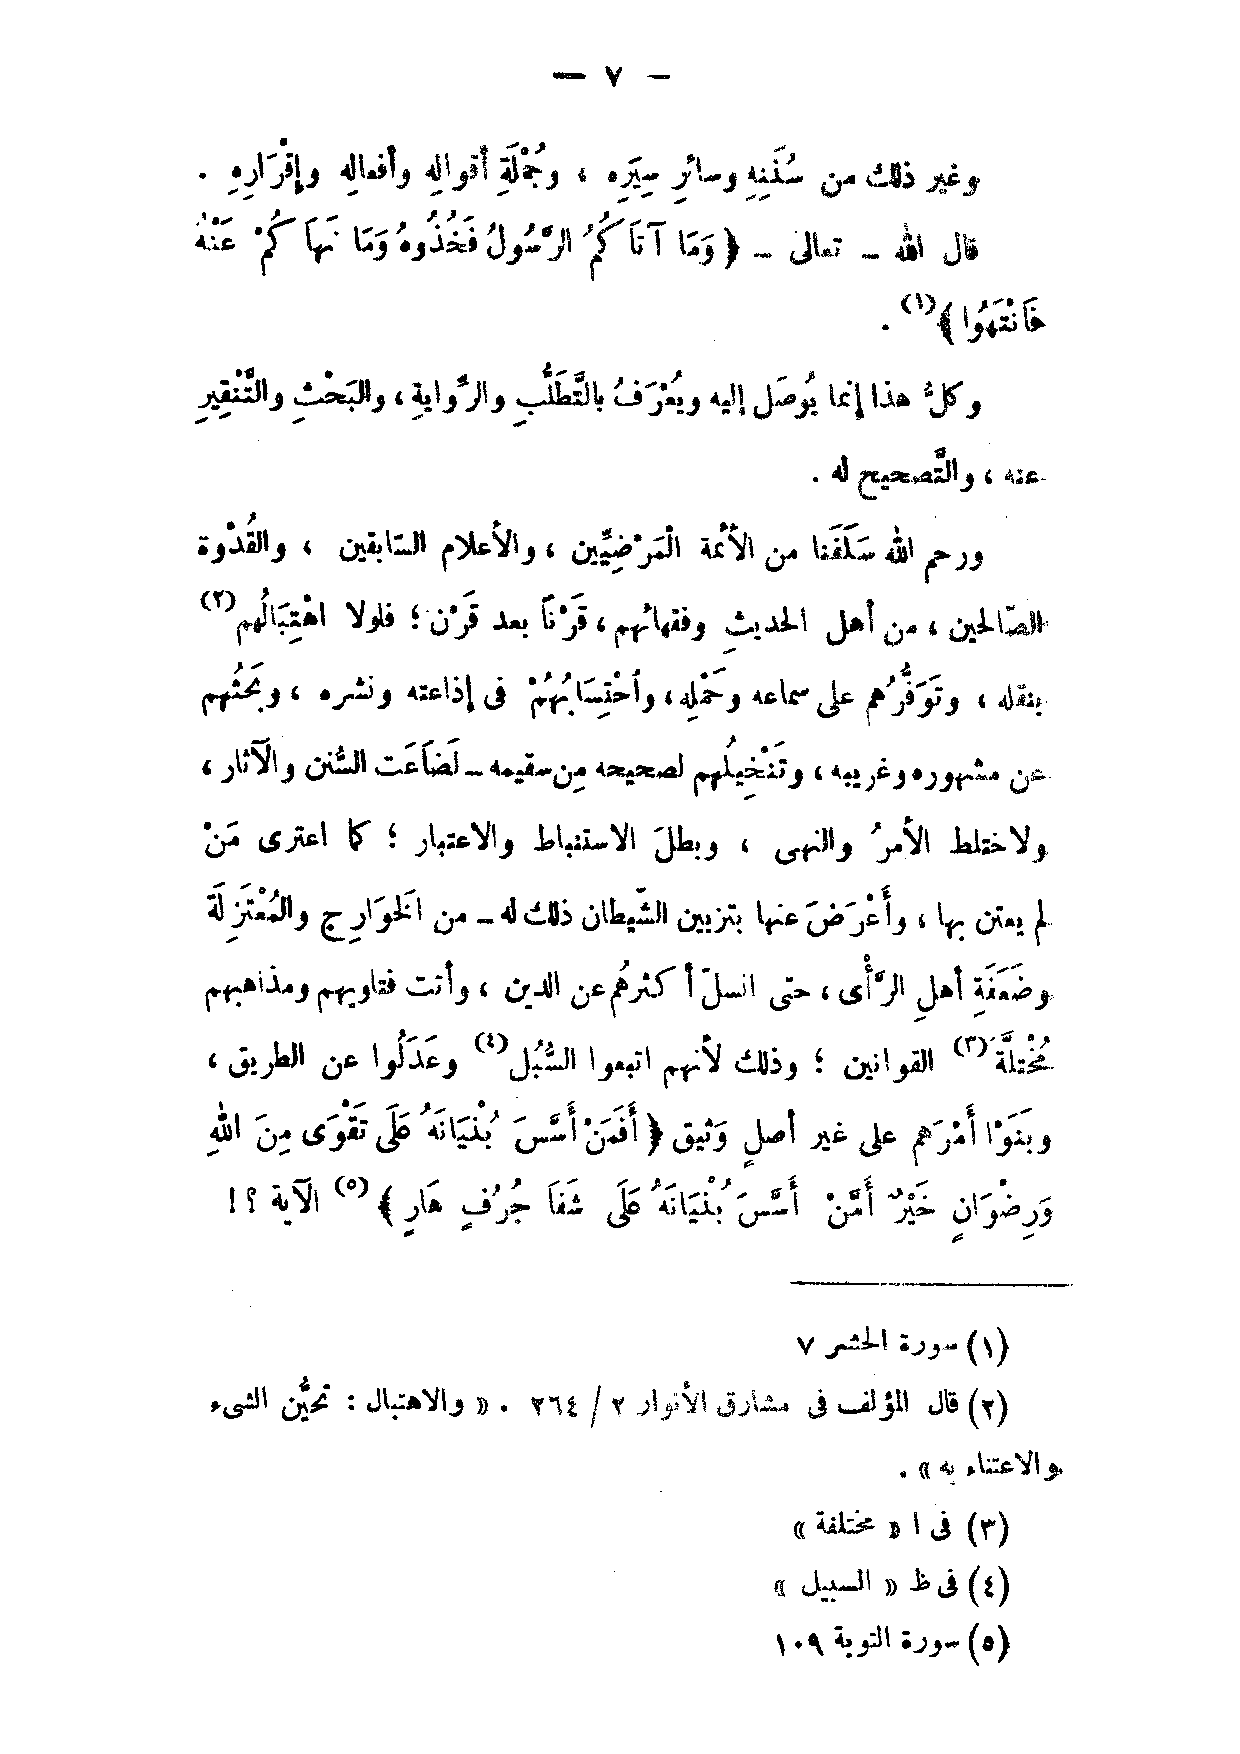 — ٧ —
وغير ذلك من سُنَنِهِ وسائرِ سِيَرِه ، وجُمْلَةِ أقوالِه وأفعالِه وإقْرَارِهِ .
قال الله – تعالى – ﴿ وَمَا آتَاكُمُ الرَّسُولُ فَخُذُوهُ وَمَا نَهَاكُمْ عَنْهُ
فَانْتَهُوا ﴾(١) .
وكلُّ هذا إنما يُوصَل إليه ويُعْرَفُ بالتَّطَلُّبِ والرِّوايةِ ، والبَحْثِ والتَّنْقِيرِ
عنه ، والتَّصحيح له .
ورحم الله سَلَفَنا من الأئمة المَرْضِيِّين ، والأعلام السّابقين ، والقُدْوة
الصّالحين ، من أهل الحديثِ وفقهائهم ، قَرْنًا بعد قَرْن ؛ فلولا اهْتِبَالُهم(٢)
بنقله ، وتَوَفُّرُهم على سماعه وحَمْلِه ، وأحْتِسَابُهُمْ فى إذاعته ونشره ، وبَحْثُهم
عن مشهوره وغريبه ، وتَنْخِيلُهم لصحيحه من سقيمه – لَضَاعَت السُّنن والآثار ،
ولاختلط الأمرُ والنهى ، وبطلَ الاستنباط والاعتبار ؛ كما اعترى مَنْ
لم يعتن بها ، وأَعْرَضَ عنها بتزيين الشّيطان ذلك له – من الخَوَارِج والمُعْتَزِلَة
وضَعَفَةِ أهلِ الرَّأْى ، حتى انسلّ أكثرُهم عن الدين ، وأتت فتاويهم ومذاهبهم
مُخْتلَّةَ(٣) القوانين ؛ وذلك لأنهم اتبعوا السُّبُل(٤) وعَدَلُوا عن الطريق ،
وبَنَوْا أمْرَهم على غير أصلٍ وَثيق ﴿ أَفَمَنْ أَسَّسَ بُنْيَانَهُ عَلَى تَقْوَى مِنَ اللهِ
وَرِضْوَانٍ خَيْرٌ أَمَّنْ أَسَّسَ بُنْيَانَهُ عَلَى شَفَا جُرُفٍ هَارٍ ﴾(٥) الآية ؟ !
(١) سورة الحشر ٧
(٢) قال المؤلف فى مشارق الأنوار ٢ / ٢٦٤ . « والاهتبال : تحيُّن الشىء
والاعتناء به » .
(٣) فى ا « مختلفة »
(٤) فى ظ « السبيل »
(٥) سورة التوبة ١٠٩